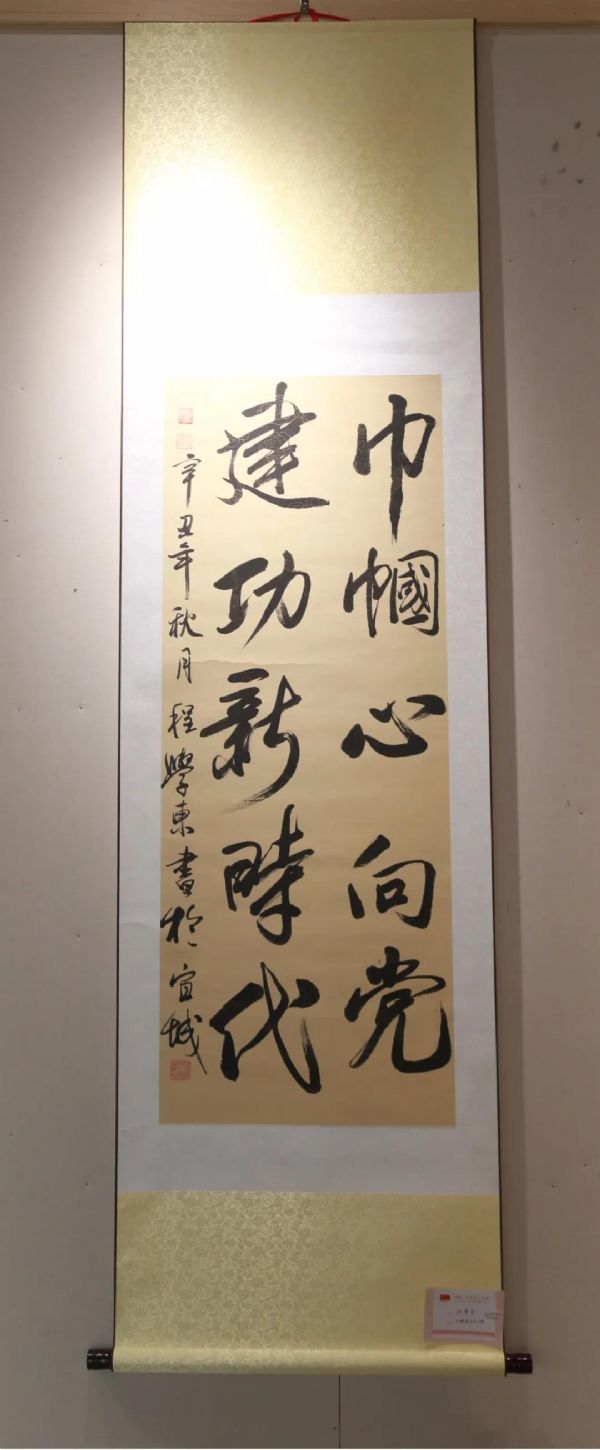 巾帼心向党
建功新時代
辛丑年秋月程學東書於宣城